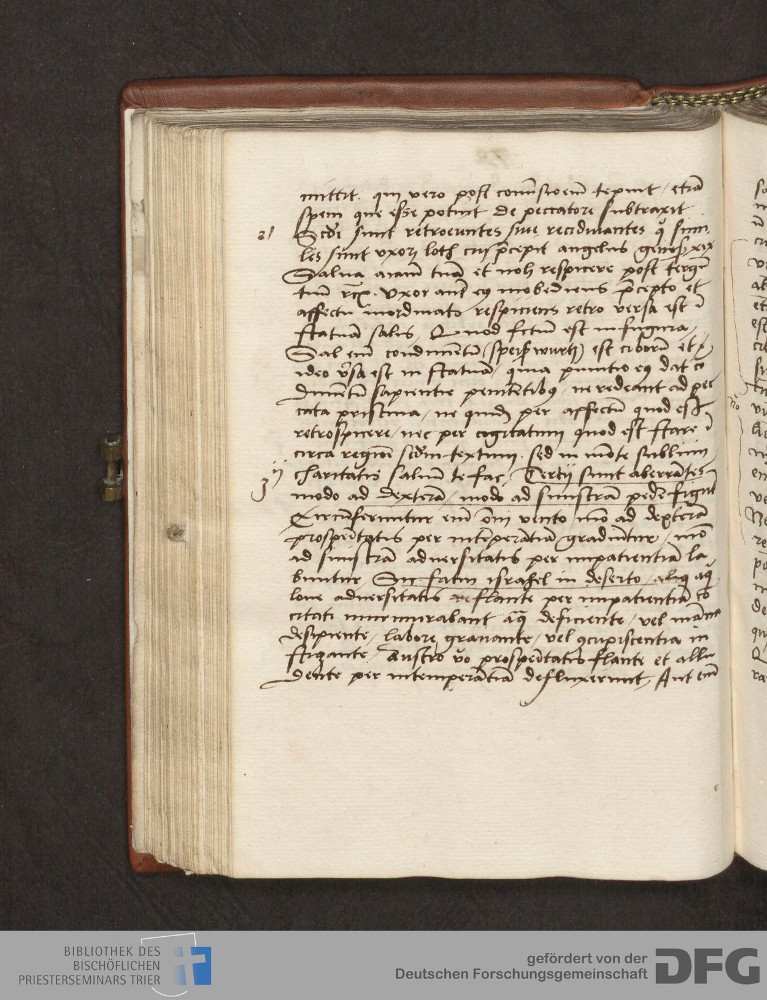 mittit. qui vero post conūsioem tepuit, etiā
spem que esse potuit de peccatore subtraxit.
2 Scdi sunt retroeuntes siue recidiuantes q̄ simi
les sunt vxori loth cui p̄cepit angelus genes xix
Salua aīam tuā et noli respicere post tergū
tuū rc̄. vxor aut̄ eꝰ inobediens p̄cepto et
affectu inordinato respiciens retro versa est ī
statuā salis, Quod fctū est in figura,
Sal em̄ condimētū (speiß wurtz) est ciborū et
ideo v̄sa est in statuā, quia punitio eꝰ dat cō
dimētū sapientie penitētibꝰ, ne redeant ad pec
cata pristina, ne quidē per affectū quod est
retrospicere, nec per cogitatum quod est stare ī
circa regione sed in monte sublimi
3 charitatis saluū te fac, Tertii sunt aberrātes
modo ad dexterā, modo ad sinistrā pedē figūt
Circūferuntur em̄ om̄i vento mō ad dexterā
prosperitatis per intēperātiā gradiūtur, mō
ad sinistrā aduersitatis per impatientiā la
buntur, Sic fatm israhel in deserto, aliq̄ aq̄
lone aduersitatis reflante per impatientiā cō
citati murmurabant aq̄ deficiente, vel manna
desipiente, labore grauante, vel ꝯcupiscentia in
stigante, Austro v̄o prosperitatis flante et allu
dente per intemperātiā defluxerunt, Aut em̄
BIBLIOTHEK DES
BISCHÖFLICHEN
PRIESTERSEMINARS TRIER
gefördert von der
Deutschen Forschungsgemeinschaft
DFG